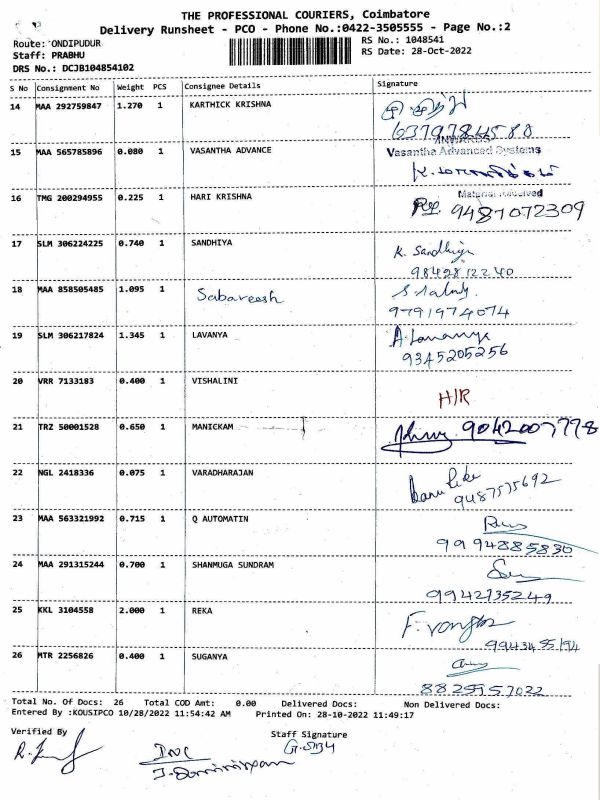 THE PROFESSIONAL COURIERS, Coimbatore
Delivery Runsheet - PCO - Phone No.:0422-3505555 - Page No.:2
Route: ONDIPUDUR
RS No.: 1048541
Staff: PRABHU
RS Date: 28-Oct-2022
DRS No.: DCJB104854102
S No Consignment No Weight PCS Consignee Details Signature
14 MAA 292759847 1.270 1 KARTHICK KRISHNA
6379784588
15 MAA 565785896 0.080 1 VASANTHA ADVANCE
Vasantha Advanced Systems
16 TMG 200294955 0.225 1 HARI KRISHNA
Material received
9487072309
17 SLM 306224225 0.740 1 SANDHIYA
K. Sandhiya
9842812240
18 MAA 858505485 1.095 1 Sabareesh
9791974074
19 SLM 306217824 1.345 1 LAVANYA
A. Lavanya
9345205256
20 VRR 7133183 0.400 1 VISHALINI
H/R
21 TRZ 50001528 0.650 1 MANICKAM 9042007778
22 NGL 2418336 0.075 1 VARADHARAJAN
9487575692
23 MAA 563321992 0.715 1 Q AUTOMATIN
9994885830
24 MAA 291315244 0.700 1 SHANMUGA SUNDRAM
9942735249
25 KKL 3104558 2.000 1 REKA
9943455194
26 MTR 2256826 0.400 1 SUGANYA
8825957022
Total No. Of Docs: 26 Total COD Amt: 0.00 Delivered Docs: Non Delivered Docs:
Entered By :KOUSIPCO 10/28/2022 11:54:42 AM Printed On: 28-10-2022 11:49:17
Verified By
Staff Signature